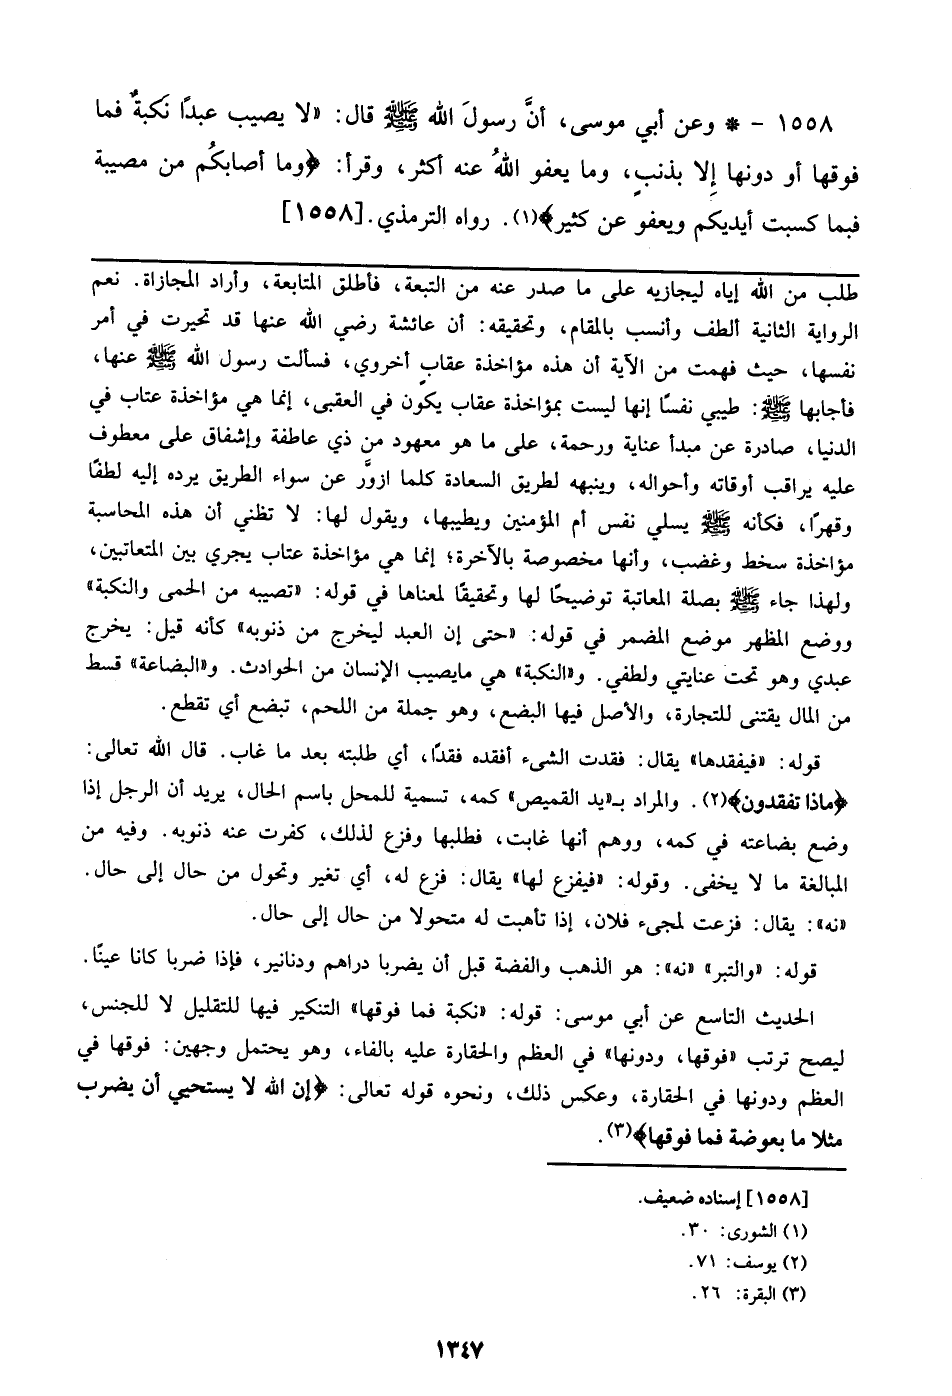 ١٥٥٨ - * وعن أبي موسى، أنَّ رسولَ الله ﷺ قال: «لا يصيب عبدًا نَكبةٌ فما
فوقها أو دونها إِلا بذنبٍ، وما يعفو اللهُ عنه أكثر، وقرأ: ﴿وما أصابكُم من مصيبة
فبما كسبت أيديكم ويعفو عن كثير﴾(١). رواه الترمذي.[١٥٥٨]
طلب من الله إياه ليجازيه على ما صدر عنه من التبعة، فأطلق المتابعة، وأراد المجازاة. نعم
الرواية الثانية ألطف وأنسب بالمقام، وتحقيقه: أن عائشة رضي الله عنها قد تحيرت في أمر
نفسها، حيث فهمت من الآية أن هذه مؤاخذة عقابٍ أخروي، فسألت رسول الله ﷺ عنها،
فأجابها ﷺ: طيبي نفسًا إنها ليست بمؤاخذة عقاب يكون في العقبى، إنما هي مؤاخذة عتاب في
الدنيا، صادرة عن مبدأ عناية ورحمة، على ما هو معهود من ذي عاطفة وإشفاق على معطوف
عليه يراقب أوقاته وأحواله، وينبهه لطريق السعادة كلما ازورَّ عن سواء الطريق يرده إليه لطفًا
وقهرًا، فكأنه ﷺ يسلي نفس أم المؤمنين ويطيبها، ويقول لها: لا تظني أن هذه المحاسبة
مؤاخذة سخط وغضب، وأنها مخصوصة بالآخرة؛ إنما هي مؤاخذة عتاب يجري بين المتعاتبين،
ولهذا جاء ﷺ بصلة المعاتبة توضيحًا لها وتحقيقًا لمعناها في قوله: «تصيبه من الحمى والنكبة»
ووضع المظهر موضع المضمر في قوله: «حتى إن العبد ليخرج من ذنوبه» كأنه قيل: يخرج
عبدي وهو تحت عنايتي ولطفي. و«النكبة» هي مايصيب الإنسان من الحوادث. و«البضاعة» قسط
من المال يقتنى للتجارة، والأصل فيها البضع، وهو جملة من اللحم، تبضع أي تقطع.
قوله: «فيفقدها» يقال: فقدت الشىء أفقده فقدًا، أي طلبته بعد ما غاب. قال الله تعالى:
﴿ماذا تفقدون﴾(٢). والمراد بـ«يد القميص» كمه، تسمية للمحل باسم الحال، يريد أن الرجل إذا
وضع بضاعته في كمه، ووهم أنها غابت، فطلبها وفزع لذلك، كفرت عنه ذنوبه. وفيه من
المبالغة ما لا يخفى. وقوله: «فيفزع لها» يقال: فزع له، أي تغير وتحول من حال إلى حال.
«نه»: يقال: فزعت لمجىء فلان، إذا تأهبت له متحولا من حال إلى حال.
قوله: «والتبر» «نه»: هو الذهب والفضة قبل أن يضربا دراهم ودنانير، فإذا ضربا كانا عينًا.
الحديث التاسع عن أبي موسى: قوله: «نكبة فما فوقها» التنكير فيها للتقليل لا للجنس،
ليصح ترتب «فوقها، ودونها» في العظم والحقارة عليه بالفاء، وهو يحتمل وجهين: فوقها في
العظم ودونها في الحقارة، وعكس ذلك، ونحوه قوله تعالى: ﴿إن الله لا يستحيي أن يضرب
مثلا ما بعوضة فما فوقها﴾(٣).
[١٥٥٨] إسناده ضعيف.
(١) الشورى: ٣٠.
(٢) يوسف: ٧١.
(٣) البقرة: ٢٦.
١٣٤٧